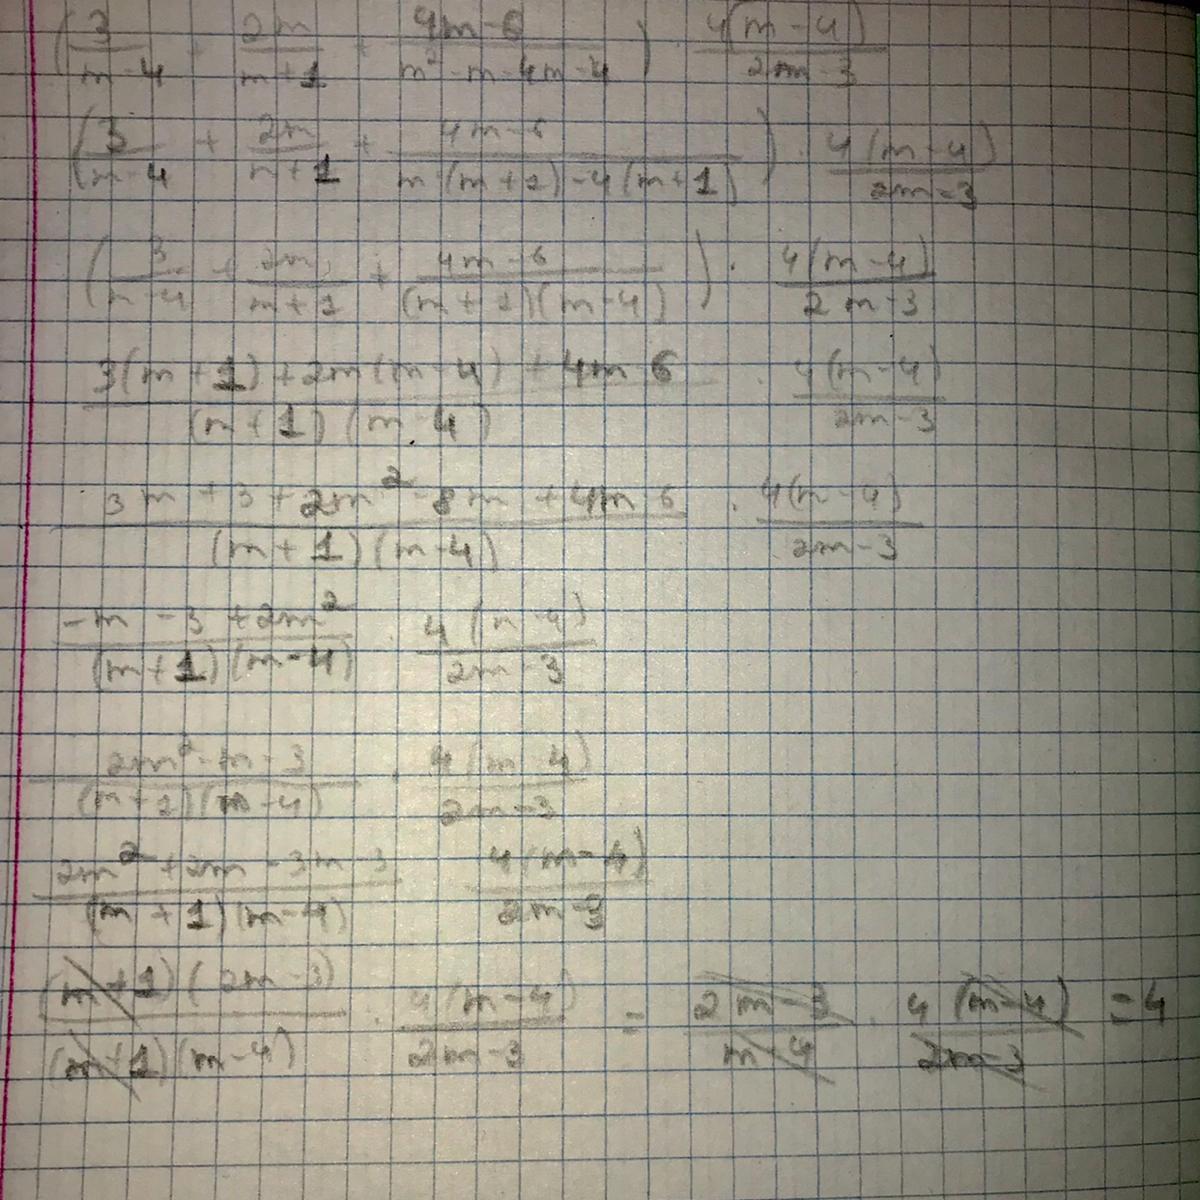 (3/(m-4) + 2m/(m+1) + (4m-6)/(m²-m-4m-4)) · 4(m-4)/(2m-3)
(3/(m-4) + 2m/(m+1) + (4m-6)/(m(m+1)-4(m+1))) · 4(m-4)/(2m-3)
(3/(m-4) + 2m/(m+1) + (4m-6)/((m+1)(m-4))) · 4(m-4)/(2m-3)
(3(m+1)+2m(m-4)+4m-6)/((m+1)(m-4)) · 4(m-4)/(2m-3)
(3m+3+2m²-8m+4m-6)/((m+1)(m-4)) · 4(m-4)/(2m-3)
(-m-3+2m²)/((m+1)(m-4)) · 4(m-4)/(2m-3)
(2m²-m-3)/((m+1)(m-4)) · 4(m-4)/(2m-3)
(2m²+2m-3m-3)/((m+1)(m-4)) 4(m-4)/(2m-3)
((m+1)(2m-3))/((m+1)(m-4)) · 4(m-4)/(2m-3) = (2m-3)/(m-4) · 4(m-4)/(2m-3) = 4